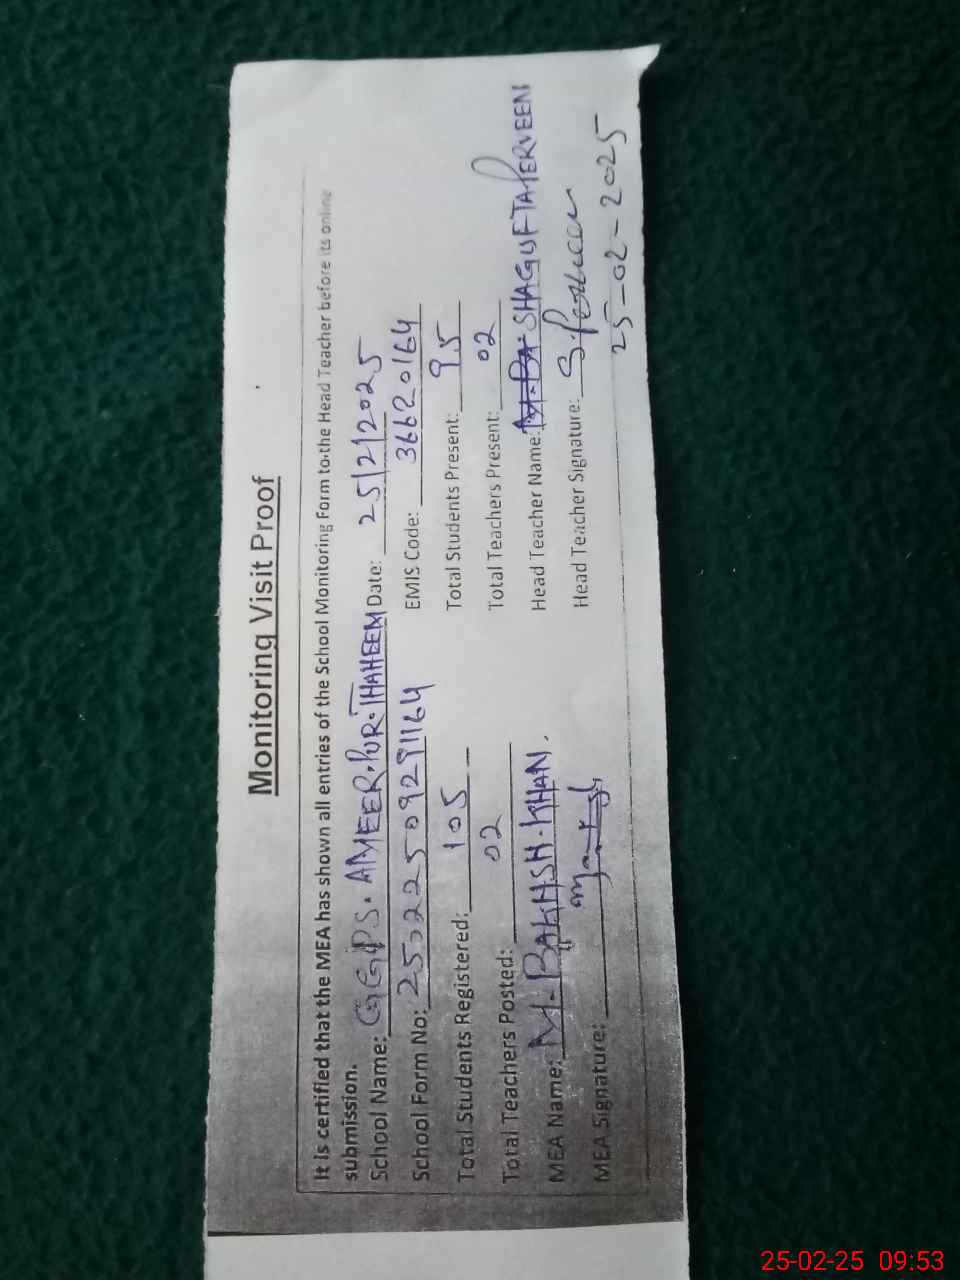 Monitoring Visit Proof
It is certified that the MEA has shown all entries of the School Monitoring Form to the Head Teacher before its online
submission.
School Name: GGPS. AMEER. PUR. THAHEEM Date: 25/2/2025
School Form No: 250222509291164 EMIS Code: 36620164
Total Students Registered: 105 Total Students Present: 95
Total Teachers Posted: 02 Total Teachers Present: 02
MEA Name: M. BAKHSH. KHAN. Head Teacher Name: SHAGUFTA PERVEEN
MEA Signature: Head Teacher Signature: S. Perveen
25-02-2025
25-02-25 09:53